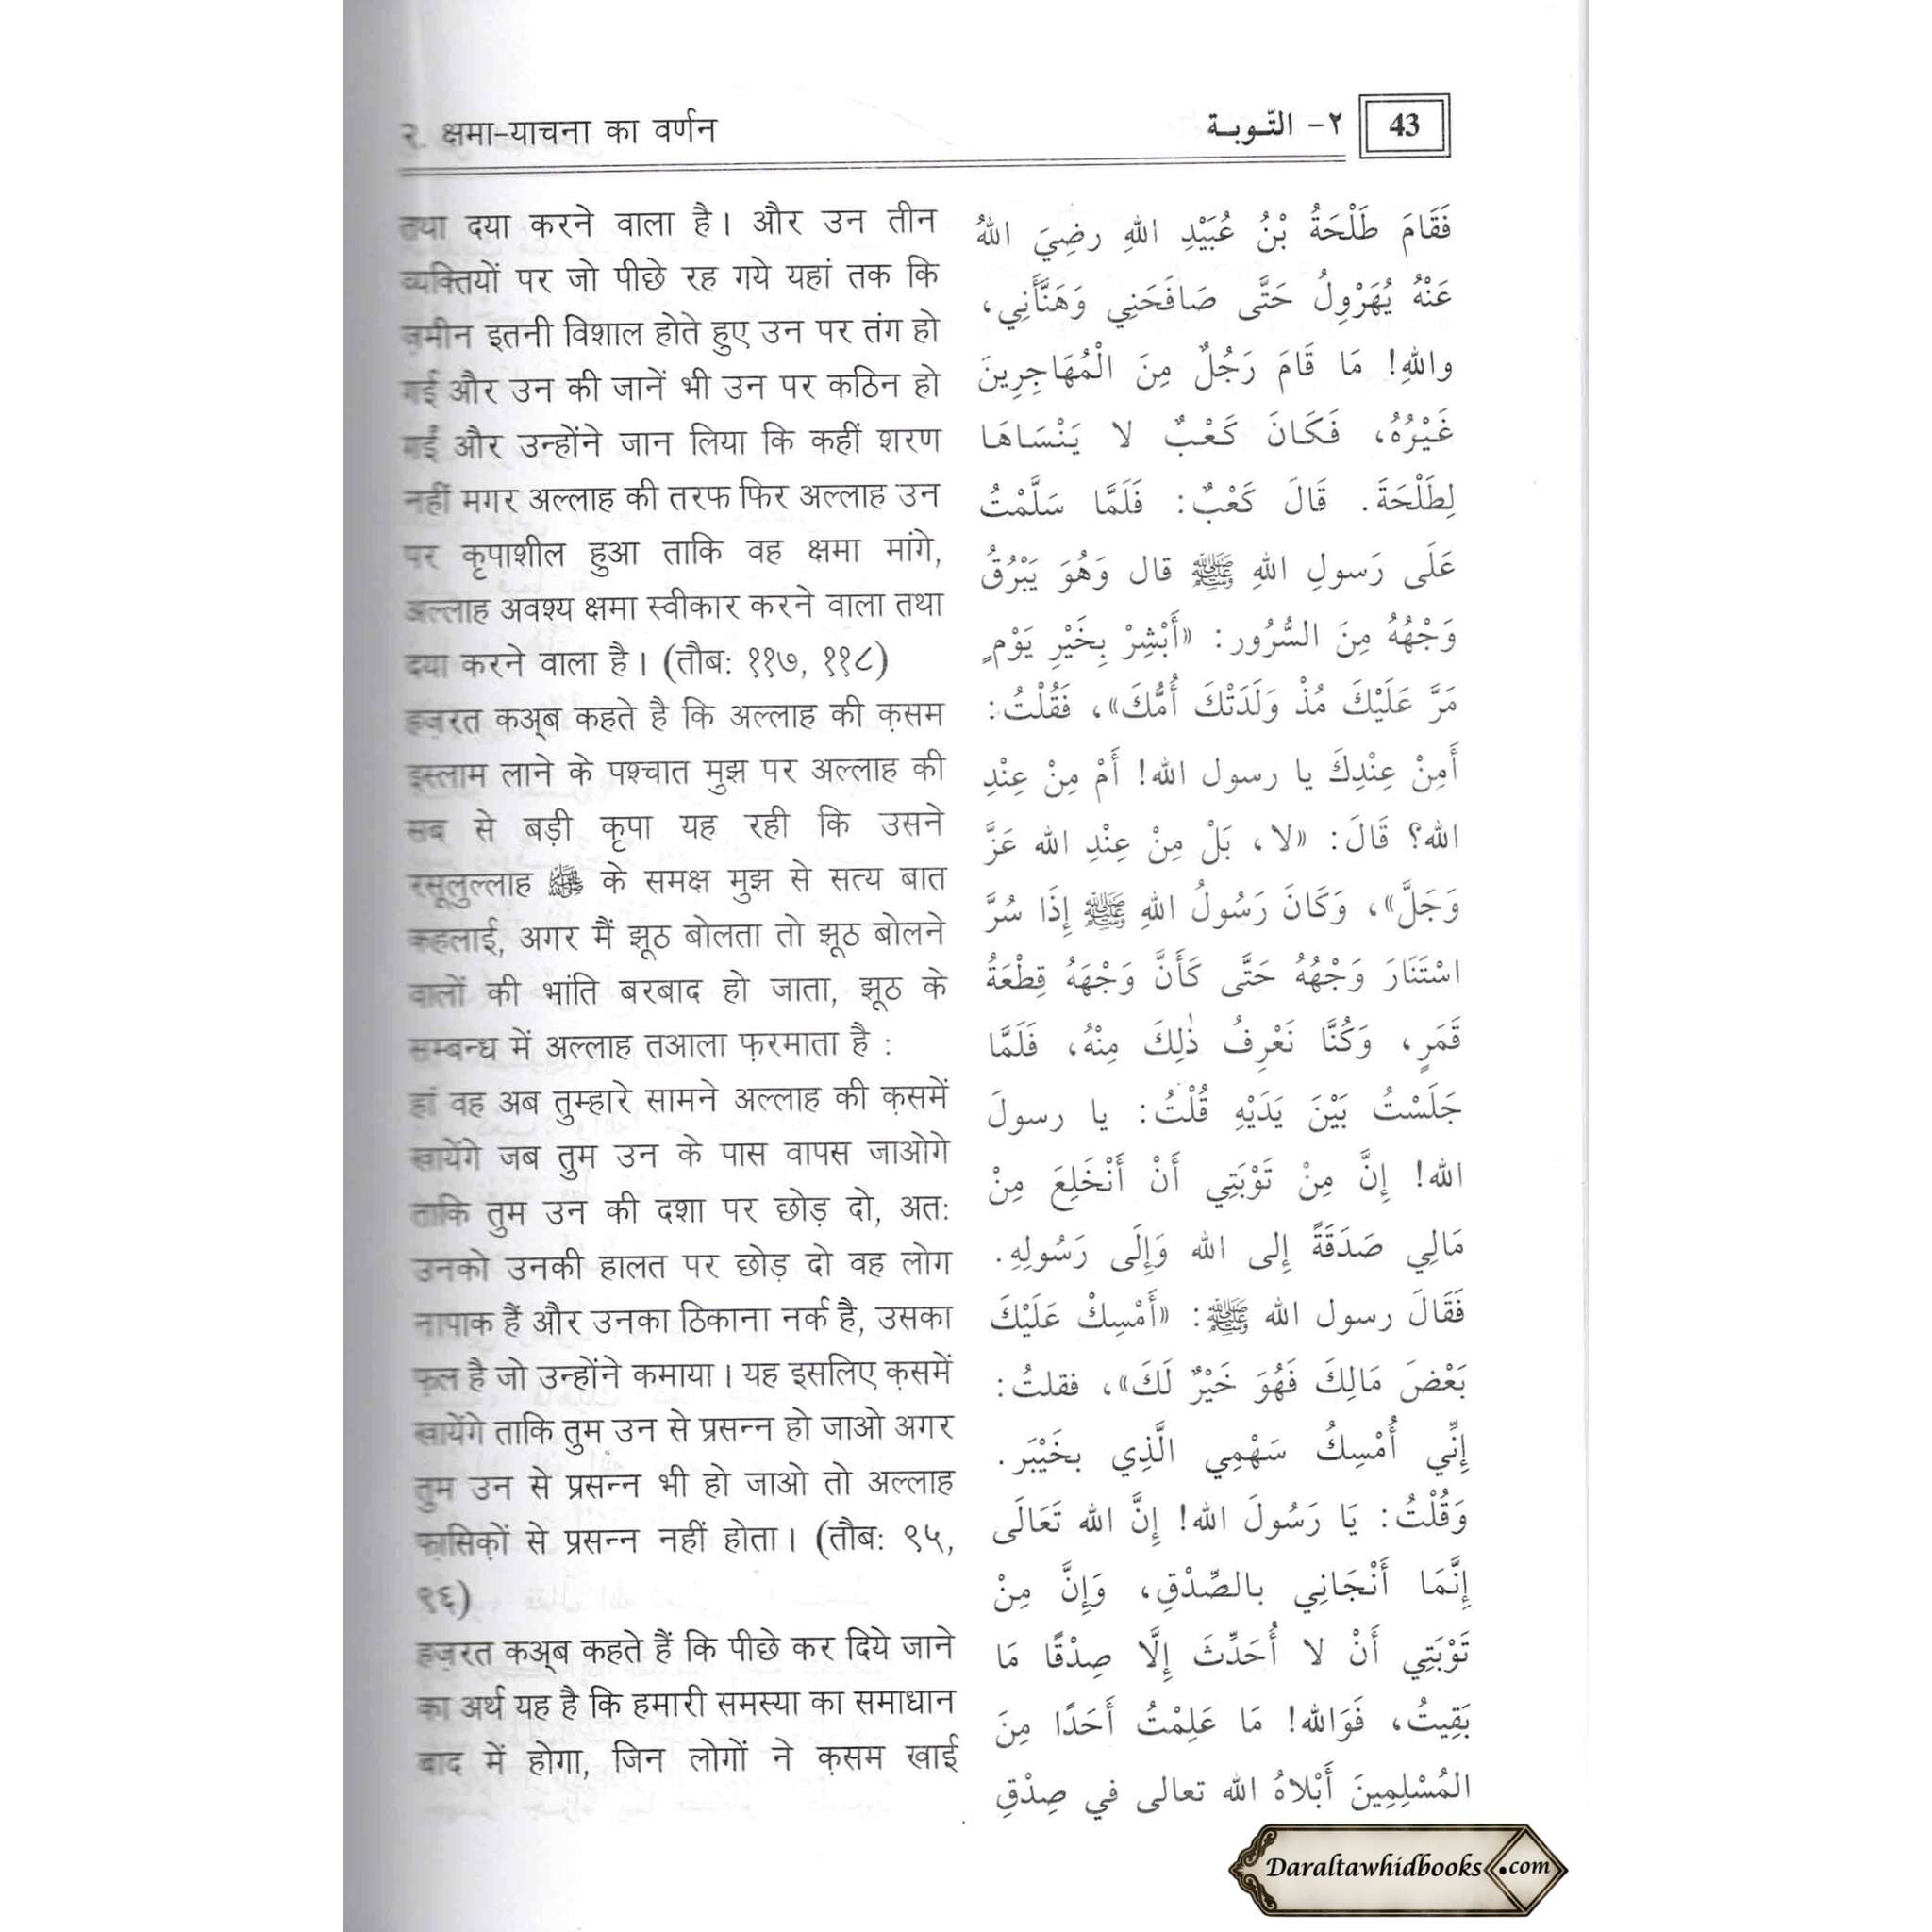 २. क्षमा-याचना का वर्णन
٢- التّوبة
43
तथा दया करने वाला है। और उन तीन
व्यक्तियों पर जो पीछे रह गये यहां तक कि
ज़मीन इतनी विशाल होते हुए उन पर तंग हो
गई और उन की जानें भी उन पर कठिन हो
गईं और उन्होंने जान लिया कि कहीं शरण
नहीं मगर अल्लाह की तरफ फिर अल्लाह उन
पर कृपाशील हुआ ताकि वह क्षमा मांगे,
अल्लाह अवश्य क्षमा स्वीकार करने वाला तथा
दया करने वाला है। (तौब: ११७, ११८)
हज़रत कअ्ब कहते है कि अल्लाह की क़सम
इस्लाम लाने के पश्चात मुझ पर अल्लाह की
सब से बड़ी कृपा यह रही कि उसने
रसूलुल्लाह ﷺ के समक्ष मुझ से सत्य बात
कहलाई, अगर मैं झूठ बोलता तो झूठ बोलने
वालों की भांति बरबाद हो जाता, झूठ के
सम्बन्ध में अल्लाह तआला फ़रमाता है :
हां वह अब तुम्हारे सामने अल्लाह की क़समें
खायेंगे जब तुम उन के पास वापस जाओगे
ताकि तुम उन की दशा पर छोड़ दो, अत:
उनको उनकी हालत पर छोड़ दो वह लोग
नापाक हैं और उनका ठिकाना नर्क है, उसका
फल है जो उन्होंने कमाया। यह इसलिए क़समें
खायेंगे ताकि तुम उन से प्रसन्न हो जाओ अगर
तुम उन से प्रसन्न भी हो जाओ तो अल्लाह
फ़ासिक़ों से प्रसन्न नहीं होता। (तौब: ९५,
९६)
हज़रत कअ्ब कहते हैं कि पीछे कर दिये जाने
का अर्थ यह है कि हमारी समस्या का समाधान
बाद में होगा, जिन लोगों ने क़सम खाई
فَقَامَ طَلْحَةُ بْنُ عُبَيْدِ اللهِ رضِيَ اللهُ
عَنْهُ يُهَرْوِلُ حَتَّى صَافَحَنِي وَهَنَّأَنِي،
واللهِ! مَا قَامَ رَجُلٌ مِنَ الْمُهَاجِرِينَ
غَيْرُهُ، فَكَانَ كَعْبٌ لا يَنْسَاهَا
لِطَلْحَةَ. قَالَ كَعْبٌ: فَلَمَّا سَلَّمْتُ
عَلَى رَسولِ اللهِ ﷺ قال وَهُوَ يَبْرُقُ
وَجْهُهُ مِنَ السُّرُور: «أَبْشِرْ بِخَيْرِ يَوْمٍ
مَرَّ عَلَيْكَ مُذْ وَلَدَتْكَ أُمُّكَ»، فَقُلْتُ:
أَمِنْ عِنْدِكَ يا رسول الله! أَمْ مِنْ عِنْدِ
الله؟ قَالَ: «لا، بَلْ مِنْ عِنْدِ الله عَزَّ
وَجَلَّ»، وَكَانَ رَسُولُ اللهِ ﷺ إِذَا سُرَّ
اسْتَنَارَ وَجْهُهُ حَتَّى كَأَنَّ وَجْهَهُ قِطْعَةُ
قَمَرٍ، وَكُنَّا نَعْرِفُ ذٰلِكَ مِنْهُ، فَلَمَّا
جَلَسْتُ بَيْنَ يَدَيْهِ قُلْتُ: يا رسولَ
الله! إِنَّ مِنْ تَوْبَتِي أَنْ أَنْخَلِعَ مِنْ
مَالِي صَدَقَةً إلى الله وَإِلَى رَسُولِهِ.
فَقَالَ رسول الله ﷺ: «أَمْسِكْ عَلَيْكَ
بَعْضَ مَالِكَ فَهُوَ خَيْرٌ لَكَ»، فقلتُ:
إِنِّي أُمْسِكُ سَهْمِي الَّذِي بخَيْبَر.
وَقُلْتُ: يَا رَسُولَ الله! إِنَّ الله تَعَالَى
إِنَّمَا أَنْجَانِي بالصِّدْقِ، وَإِنَّ مِنْ
تَوْبَتِي أَنْ لا أُحَدِّثَ إِلَّا صِدْقًا مَا
بَقِيتُ، فَوَالله! مَا عَلِمْتُ أَحَدًا مِنَ
المُسْلِمِينَ أَبْلاهُ الله تعالى في صِدْقِ
Daraltawhidbooks.com